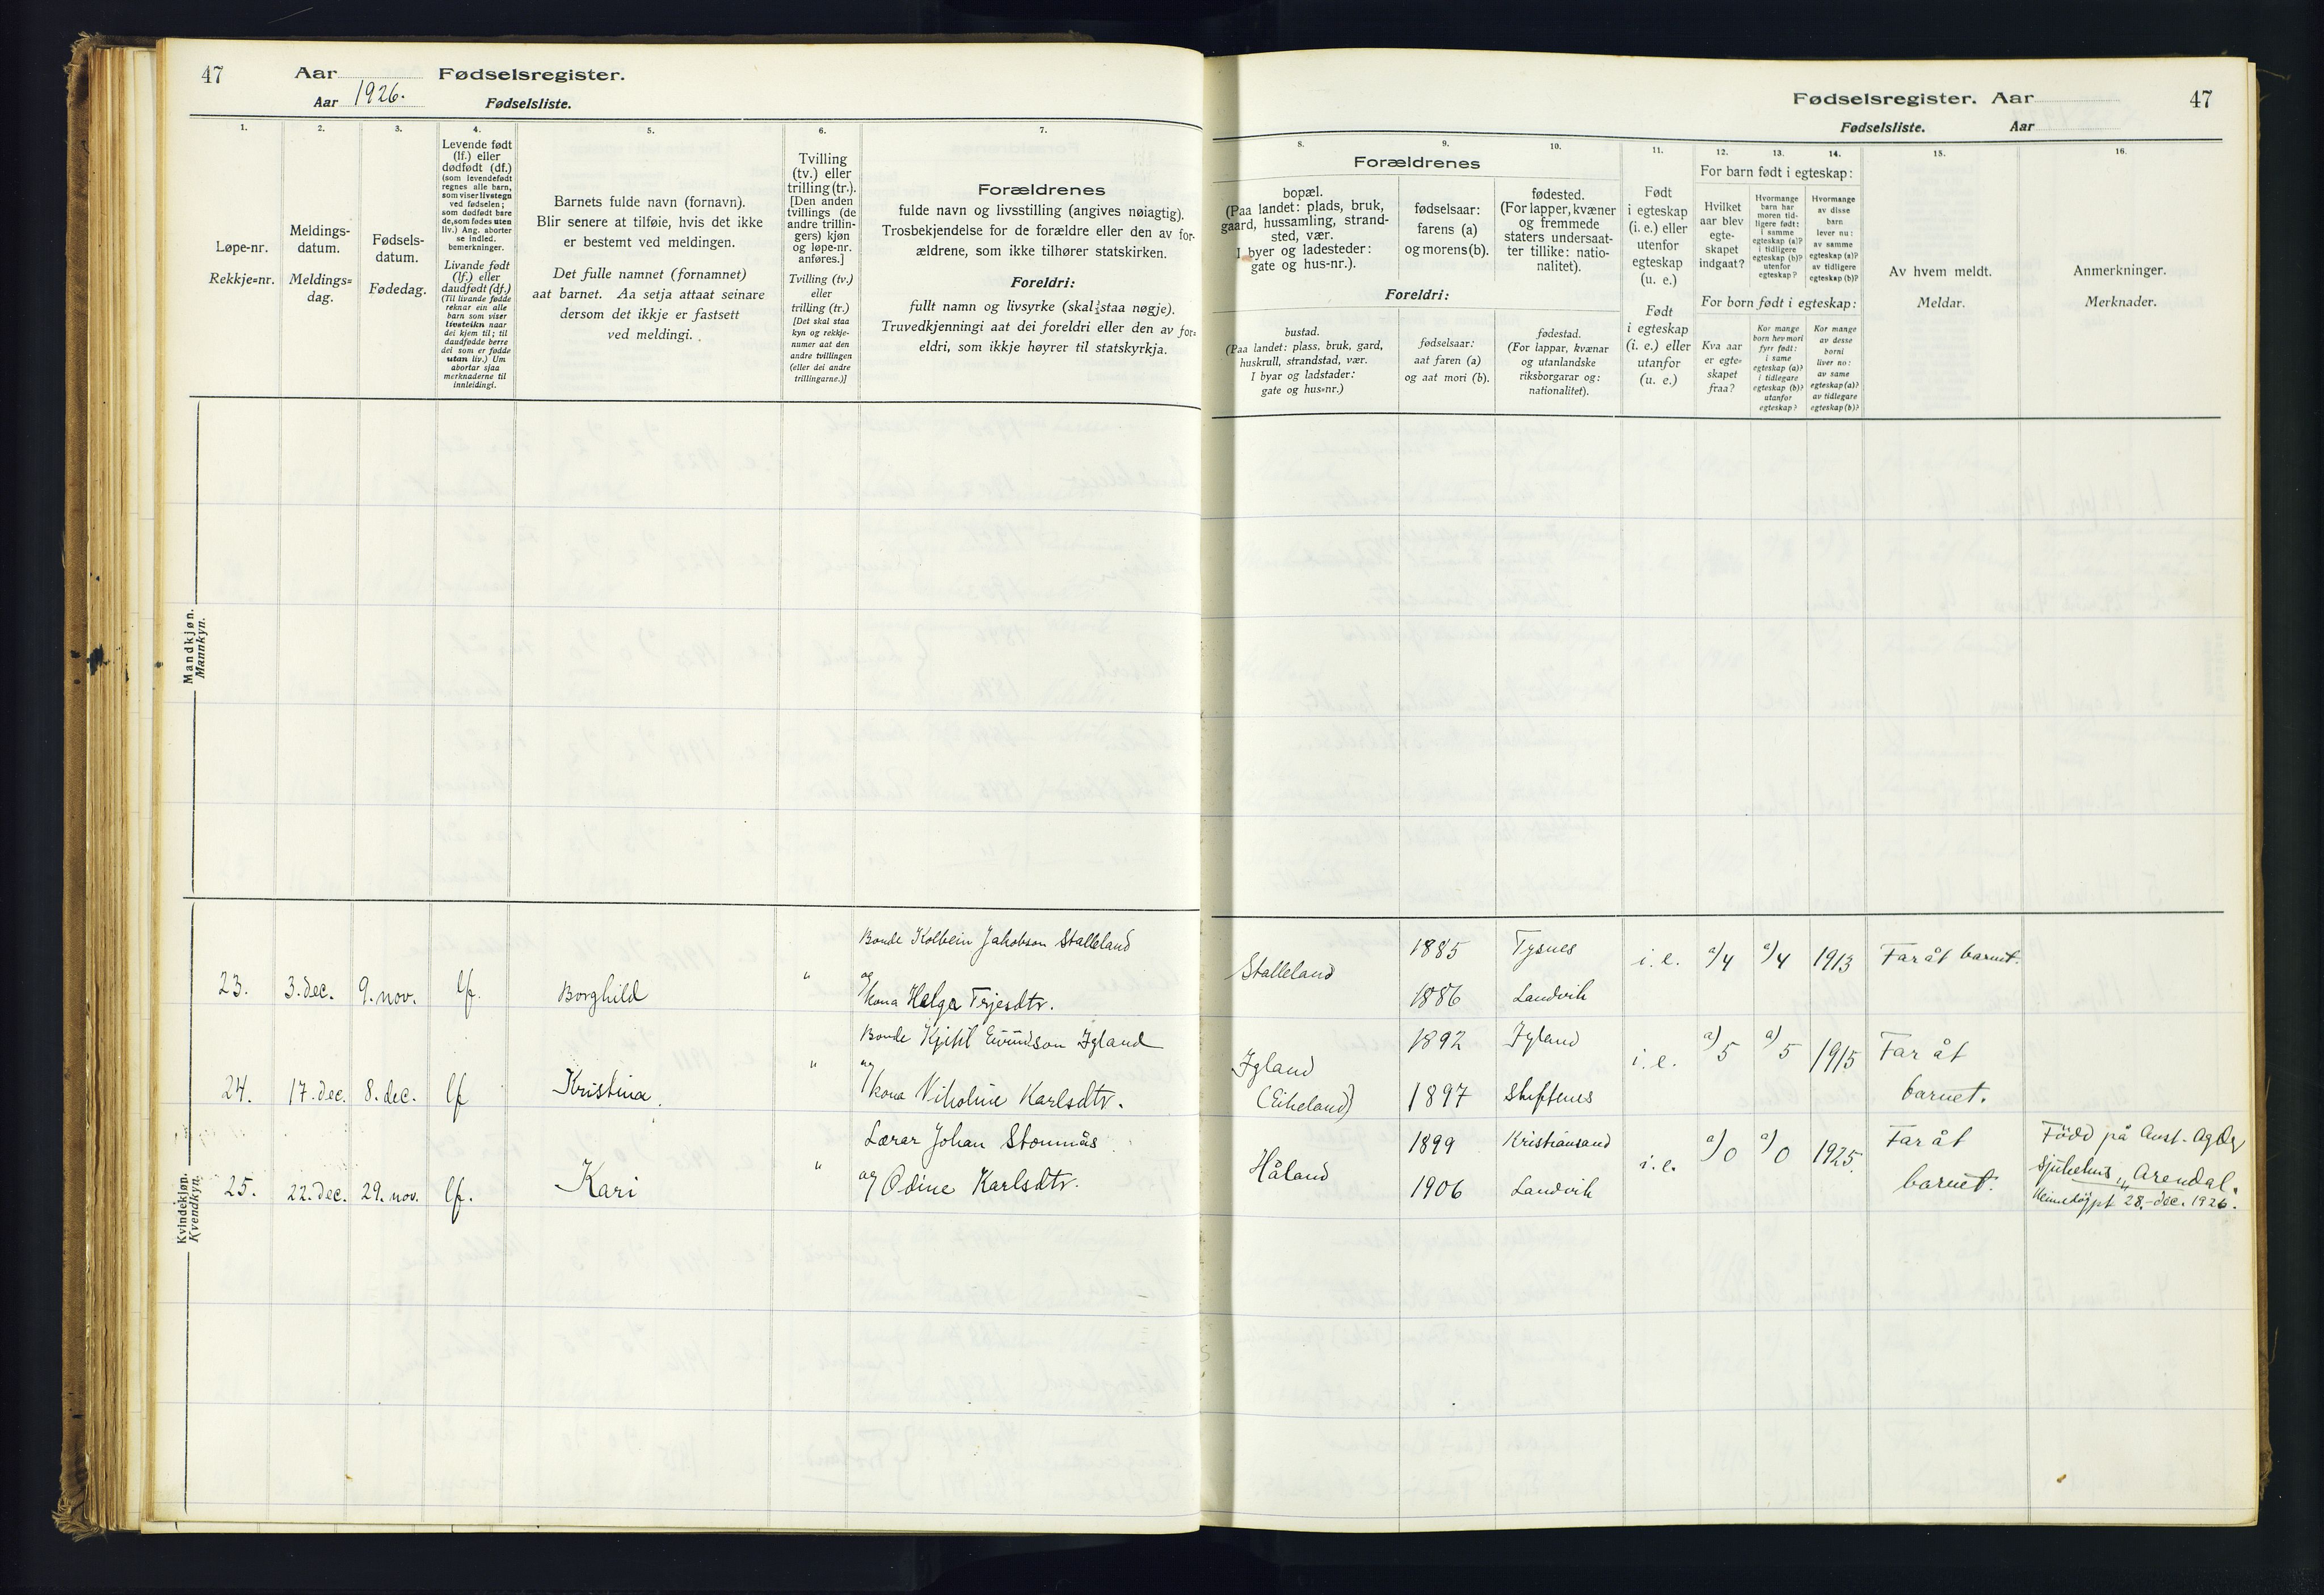 47
Aar
Fødselsregister.
Aar 1926.
Fødselsliste.
1.
2.
3.
4.
5.
6.
7.
Løpe-nr.
Rekkje=nr.
Meldings-
datum.
Meldings=
dag.
Fødsels-
datum.
Fødedag.
Levende født
(lf.) eller
dødfødt (df.)
(som levendefødt
regnes alle barn,
som viser livstegn
ved fødselen;
som dødfødt bare
de, som fødes uten
liv.) Ang. aborter
se indled.
bemerkninger.
Livande født
(lf.) eller
daudfødt (df.)
(Til livande fødde
reknar ein alle
barn som viser
livsteikn naar
dei kjem til; til
daudfødde berre
dei som er fødde
utan liv.) Um
abortar sjaa
merknaderne til
innleidingi.
Barnets fulde navn (fornavn).
Blir senere at tilføie, hvis det ikke
er bestemt ved meldingen.
Det fulle namnet (fornamnet)
aat barnet. Aa setja attaat seinare
dersom det ikkje er fastsett
ved meldingi.
Tvilling
(tv.) eller
trilling (tr.).
[Den anden
tvillings (de
andre trillin-
gers) kjøn
og løpe-nr.
anføres.]
Tvilling (tv.)
eller
trilling (tr.)
[Det skal staa
kyn og rekkje-
numer aat den
andre tvillingen
(eller dei andre
trillingarne.)]
Forældrenes
fulde navn og livsstilling (angives nøiagtig).
Trosbekjendelse for de forældre eller den av for-
ældrene, som ikke tilhører statskirken.
Foreldri:
fullt namn og livsyrke (skal staa nøgje).
Truvedkjenningi aat dei foreldri eller den av for=
eldri, som ikkje høyrer til statskyrkja.
Mandkjøn.
Mannkyn.
Kvindekjøn.
Kvendkyn.
Bonde Kolbein Jakobson Stalleland
23. 3. dec. 9. nov. lf. Borghild " og kona Helga Terjesdtr.
Bonde Kjetil Eivindson Igland
24. 17. dec. 8. dec. lf Kristina. " og kona Vilholine Karlsdtr.
Lærar Johan Stomnås
25. 22. dec. 29. nov. lf. Kari " og Odine Karlsdtr.
Fødselsregister. Aar
47
Fødselsliste.
Aar
8.
9.
10.
11.
12.
13.
14.
15.
16.
Forældrenes
bopæl.
(Paa landet: plads, bruk,
gaard, hussamling, strand-
sted, vær.
I byer og ladesteder:
gate og hus-nr.).
fødselsaar:
farens (a)
og morens (b).
fødested.
(For lapper, kvæner
og fremmede
staters undersaat-
ter tillike: natio-
nalitet).
Foreldri:
bustad.
(Paa landet: plass, bruk, gard,
huskrull, strandstad, vær.
I byar og ladstader:
gate og hus=nr.)
fødselsaar:
aat faren (a)
og aat mori (b).
fødestad.
(For lappar, kvænar
og utanlandske
riksborgarar og:
nationalitet).
Født
i egteskap
(i. e.) eller
utenfor
egteskap
(u. e.)
Født
i egteskap
(i. e.) eller
utanfor
(u. e.)
For barn født i egteskap:
Hvilket
aar blev
egte-
skapet
indgaat?
Hvormange
barn har
moren tid-
ligere født:
i samme
egteskap (a)?
i tidligere
egteskap (b)?
utenfor
egteskap?
Hvormange
av disse
barn
lever nu:
av samme
egteskap (a)?
av tidligere
egteskap (b)?
For born født i egteskap:
Kva aar
er egte=
skapet
fraa?
Kor mange
born hev mori
fyrr født:
i same
egteskap (a)?
i tidlegare
egteskap (b)?
utanfor
egteskap?
Kor mange
av desse
borni
liver no:
av same
egteskap (a)?
av tidlegare
egteskap (b)?
Av hvem meldt.
Meldar.
Anmerkninger.
Merknader.
Stalleland
1885 Tysnes
1886 Landvik
i. e. a)/4 a)/4 1913 Far åt barnet.
Igland
(Eikeland)
1892 Igland
1897 
i. e. a)5 a)5 1915 Far åt
barnet.
Håland
1899 Kristiansand
1906 Landvik
i. e. a)/0 a)/0 1925. Far åt
barnet.
Född på Aust-Agder
sjukehus, "Arendal".
Heimedöypt 28.-dec. 1926.